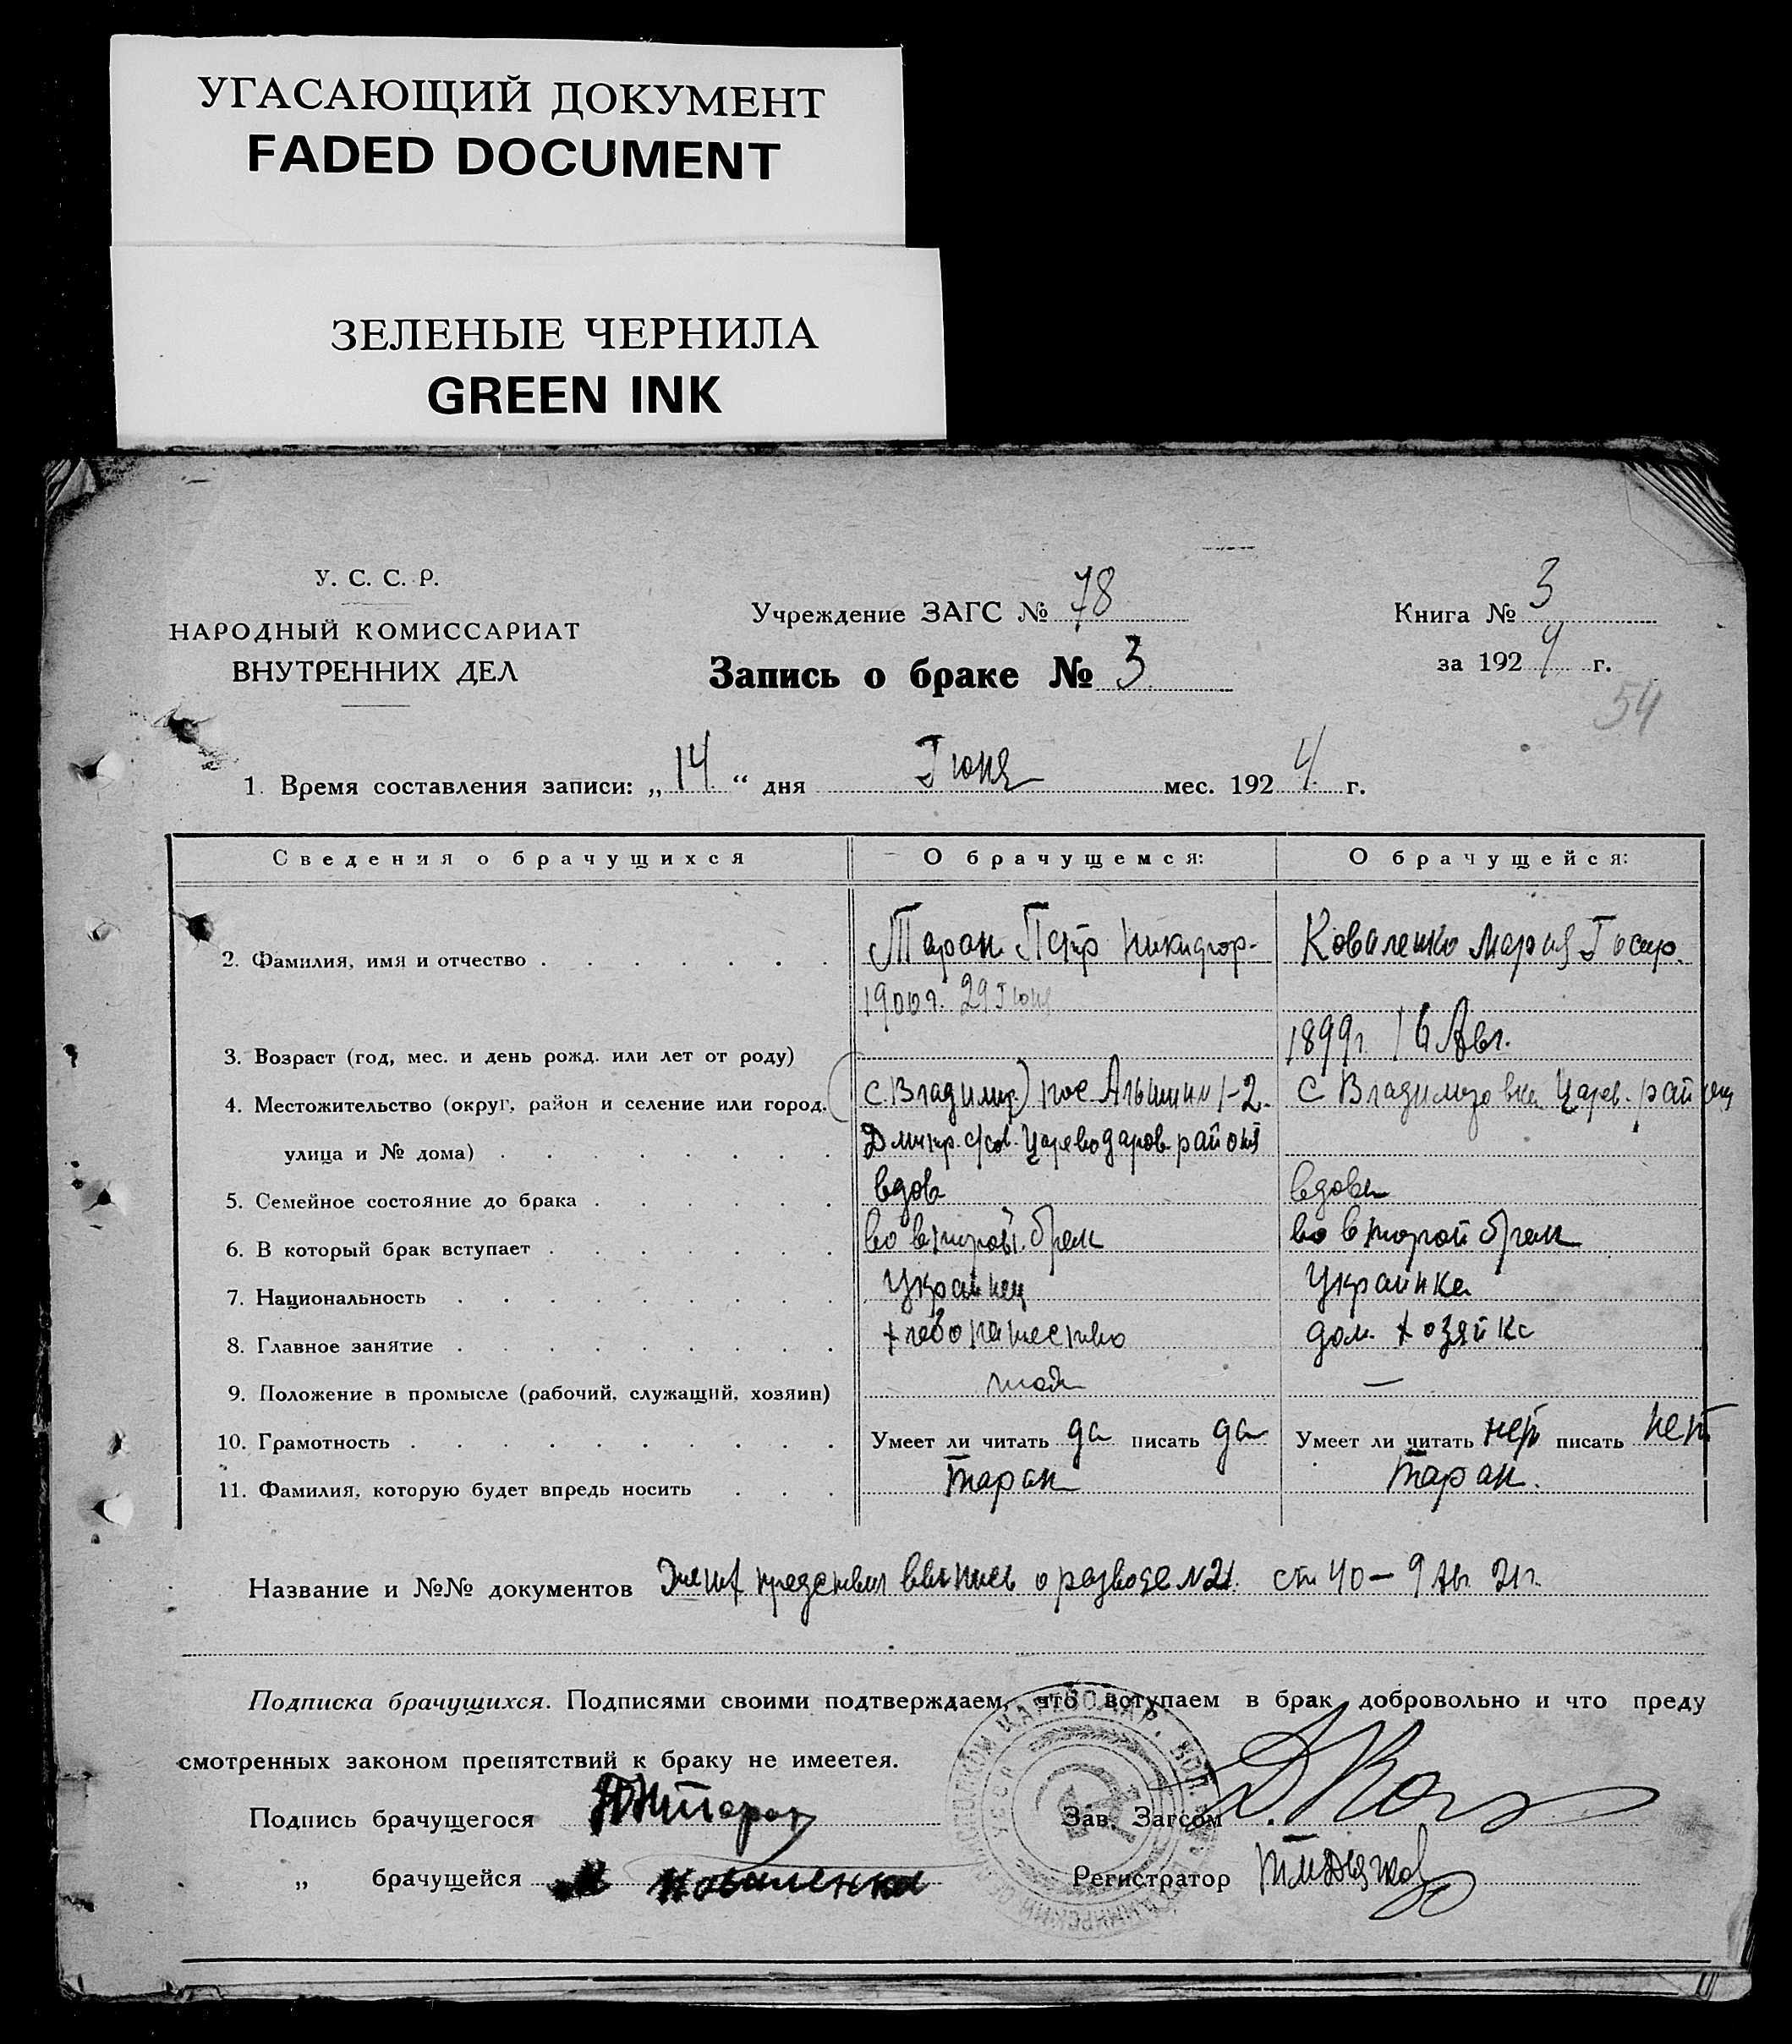 УГАСАЮЩИЙ ДОКУМЕНТ
FADED DOCUMENT
ЗЕЛЕНЫЕ ЧЕРНИЛА
GREEN INK
У. С. С. Р.
НАРОДНЫЙ КОМИССАРИАТ
ВНУТРЕННИХ ДЕЛ
Учреждение ЗАГС № 78
Запись о браке № 3
Книга № 3
за 1924 г.
54
1. Время составления записи: „14“ дня Июня мес. 1924 г.
Сведения о брачущихся
О брачущемся:
О брачущейся:
2. Фамилия, имя и отчество
Таран Петр Никифор-
Коваленко Мария
1900 г. 29 Июня
3. Возраст (год, мес. и день рожд. или лет от роду)
1899 г. 16 Авг.
4. Местожительство (округ, район и селение или город,
(с. Владимир.) пос. 1-2.
с Владимировка Царев. район
улица и № дома)
Дмитр. с/сов. Цареводаров. район
5. Семейное состояние до брака
вдов
вдова
6. В который брак вступает
во второй брак
во второй брак
7. Национальность
Украинец
Украинка
8. Главное занятие
хлебопашество
дом. хозяйка
9. Положение в промысле (рабочий, служащий, хозяин)
—
10. Грамотность
Умеет ли читать да писать да
Умеет ли читать нет писать нет
11. Фамилия, которую будет впредь носить
Таран
Таран.
Название и №№ документов выпись о разводе №21. ст 40 — 9 21 г.
Подписка брачущихся. Подписями своими подтверждаем, что вступаем в брак добровольно и что преду
смотренных законом препятствий к браку не имеетея.
Подпись брачущегося Таран
Зав. Загсом
„ брачущейся М Коваленко
Регистратор
УССР